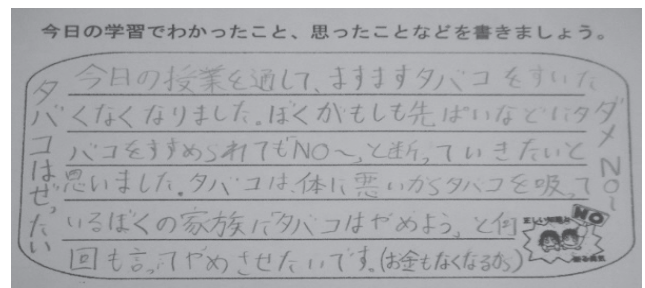 今日の学習でわかったこと、思ったことなどを書きましょう。
今日の授業を通して、ますますタバコをすいた
くなくなりました。ぼくがもしも先ぱいなどにタ
バコをすすめられても「NO〜」と断っていきたいと
思いました。タバコは、体に悪いからタバコを吸って
いるぼくの家族に「タバコはやめよう」と何
回も言ってやめさせたいです。(お金もなくなるから)
タバコはぜったい
ダメNO〜
NO